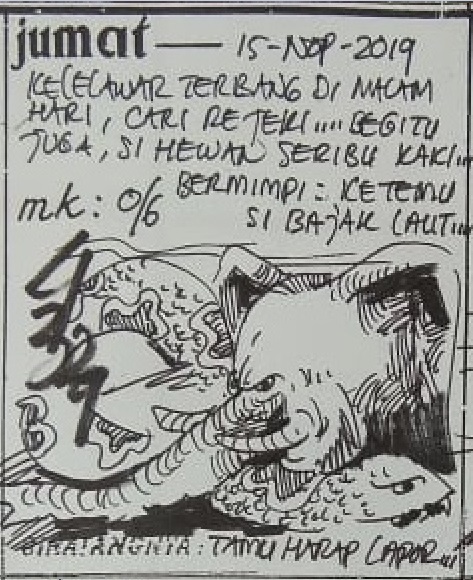 jumat — 15-NOP-2019
KELELAWAR TERBANG DI MALAM
HARI, CARI REJEKI.... BEGITU
JUGA, SI HEWAN SERIBU KAKI...
mk: 0/6 BERMIMPI: KETEMU
SI BAJAK LAUT...
: TAMU HARAP LAPOR...